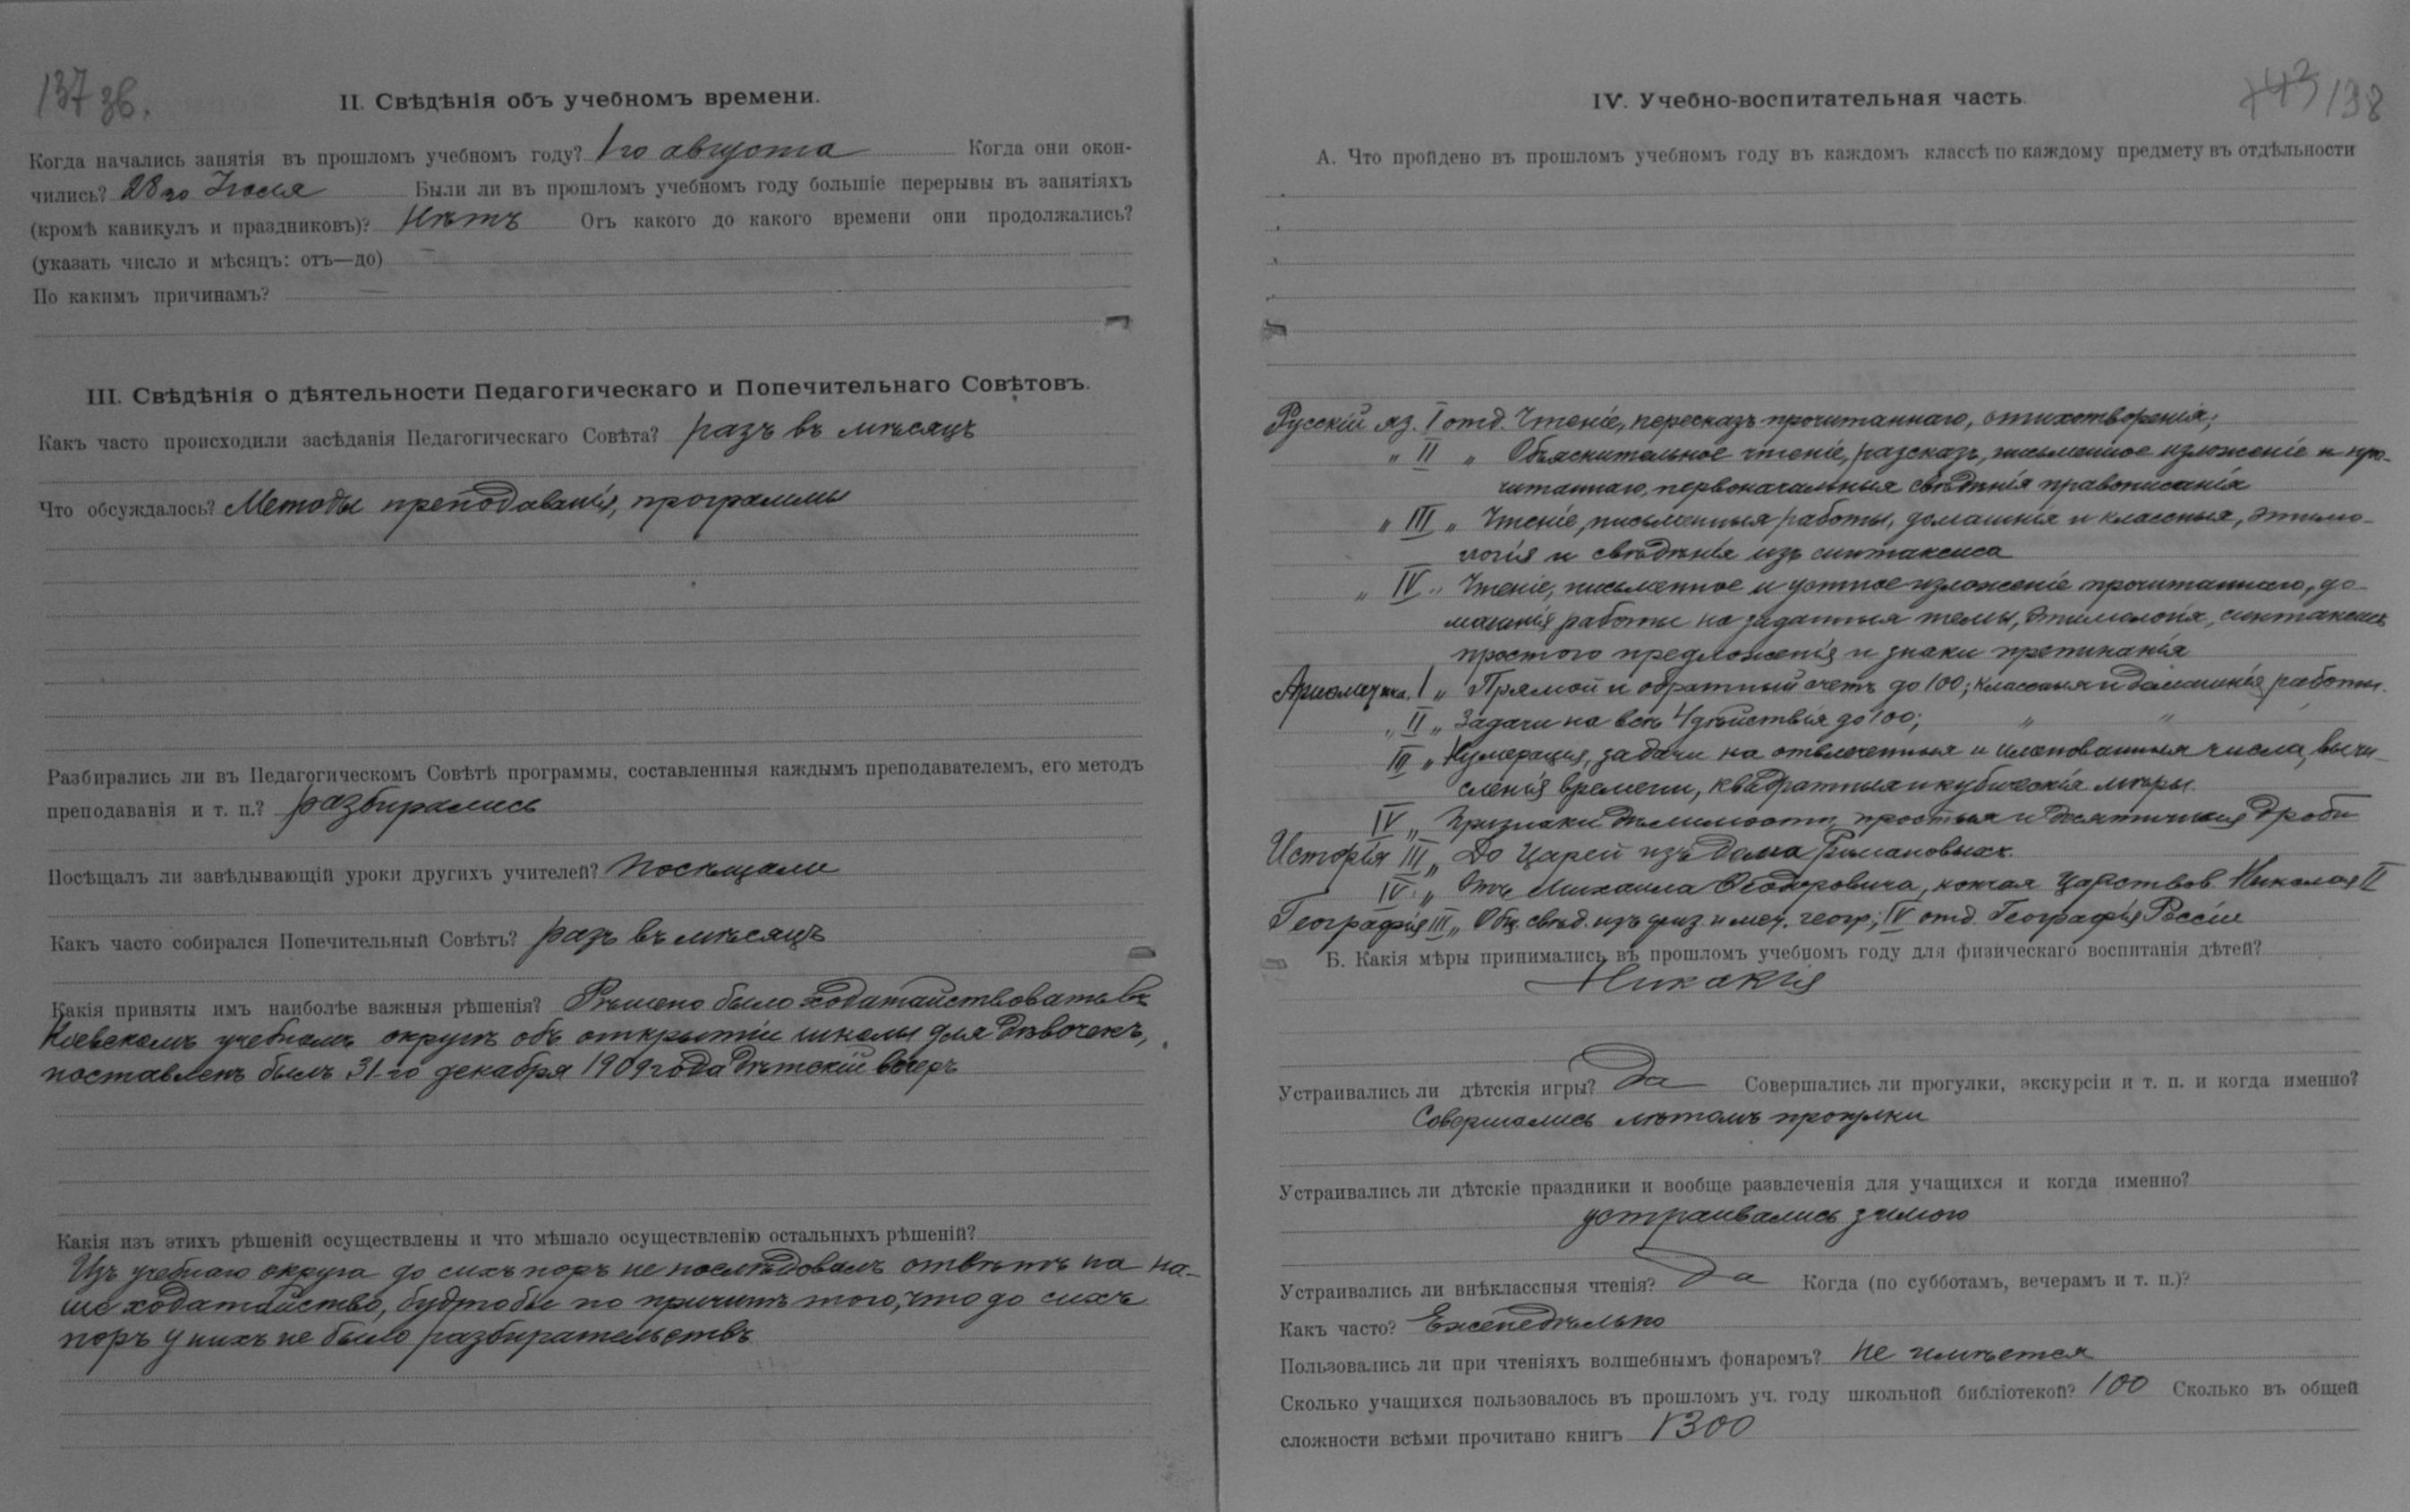 137 36.
II. Свѣдѣнія объ учебномъ времени.
Когда начались занятія въ прошломъ учебномъ году? 1го августа Когда они окон-
чились? 28го Іюля Были ли въ прошломъ учебномъ году большіе перерывы въ занятіяхъ
(кромѣ каникулъ и праздниковъ)? Нѣтъ Отъ какого до какого времени они продолжались?
(указать число и мѣсяцъ: отъ—до) —
По какимъ причинамъ? —
III. Свѣдѣнія о дѣятельности Педагогическаго и Попечительнаго Совѣтовъ.
Какъ часто происходили засѣданія Педагогическаго Совѣта? разъ въ мѣсяцъ
Что обсуждалось? Методы преподаванія, программы
Разбирались ли въ Педагогическомъ Совѣтѣ программы, составленныя каждымъ преподавателемъ, его методъ
преподаванія и т. п.? разбирались
Посѣщалъ ли завѣдывающій уроки другихъ учителей? Посѣщали
Какъ часто собирался Попечительный Совѣтъ? разъ въ мѣсяцъ
Какія приняты имъ наиболѣе важныя рѣшенія? Рѣшено было ходатайствовать въ
Кіевскомъ учебномъ округѣ объ открытіи школы для дѣвочекъ,
поставленъ былъ 31-го декабря 1909 года дѣтскій вечеръ
Какія изъ этихъ рѣшеній осуществлены и что мѣшало осуществленію остальныхъ рѣшеній?
Изъ учебнаго округа до сихъ поръ не послѣдовалъ отвѣтъ на на-
ше ходатайство, будто бы по причинѣ того, что до сихъ
поръ у нихъ не было разбирательствъ
143 138
IV. Учебно-воспитательная часть.
А. Что пройдено въ прошломъ учебномъ году въ каждомъ классѣ по каждому предмету въ отдѣльности
Русскій яз. I отд. Чтеніе, пересказъ прочитаннаго, стихотворенія;
" II " Объяснительное чтеніе, разсказъ, письменное изложеніе и про-
читаннаго, первоначальныя свѣдѣнія правописанія
" III " Чтеніе, письменныя работы, домашнія и классныя, этимо-
логія и свѣдѣнія изъ синтаксиса
" IV " Чтеніе, письменное и устное изложеніе прочитаннаго, до-
машнія работы на заданныя темы, этимологія, синтаксисъ
простого предложенія и знаки препинанія
Ариѳметика. I " Прямой и обратный счетъ до 100; классныя и домашнія работы.
" II " Задачи на всѣ 4 дѣйствія до 100; " "
III " Нумерація, задачи на отвлеченныя и именованныя числа, вычи-
сленія времени, квадратныя и кубическія мѣры.
IV " Признаки дѣлимости, простыя и десятичныя дроби
Исторія III " До Царей изъ дома Романовыхъ.
IV " Отъ Михаила Ѳеодоровича, кончая Царствов. Николая II
Географія III " Общ. свѣд. изъ физ. и мат. геогр.; IV отд. Географія Россіи
Б. Какія мѣры принимались въ прошломъ учебномъ году для физическаго воспитанія дѣтей?
Никакія
Устраивались ли дѣтскія игры? Да Совершались ли прогулки, экскурсіи и т. п. и когда именно?
Совершались лѣтомъ прогулки
Устраивались ли дѣтскіе праздники и вообще развлеченія для учащихся и когда именно?
устраивались зимою
Устраивались ли внѣклассныя чтенія? Да Когда (по субботамъ, вечерамъ и т. п.)?
Какъ часто? Еженедѣльно
Пользовались ли при чтеніяхъ волшебнымъ фонаремъ? Не имѣется
Сколько учащихся пользовалось въ прошломъ уч. году школьной библіотекой? 100 Сколько въ общей
сложности всѣми прочитано книгъ 1300